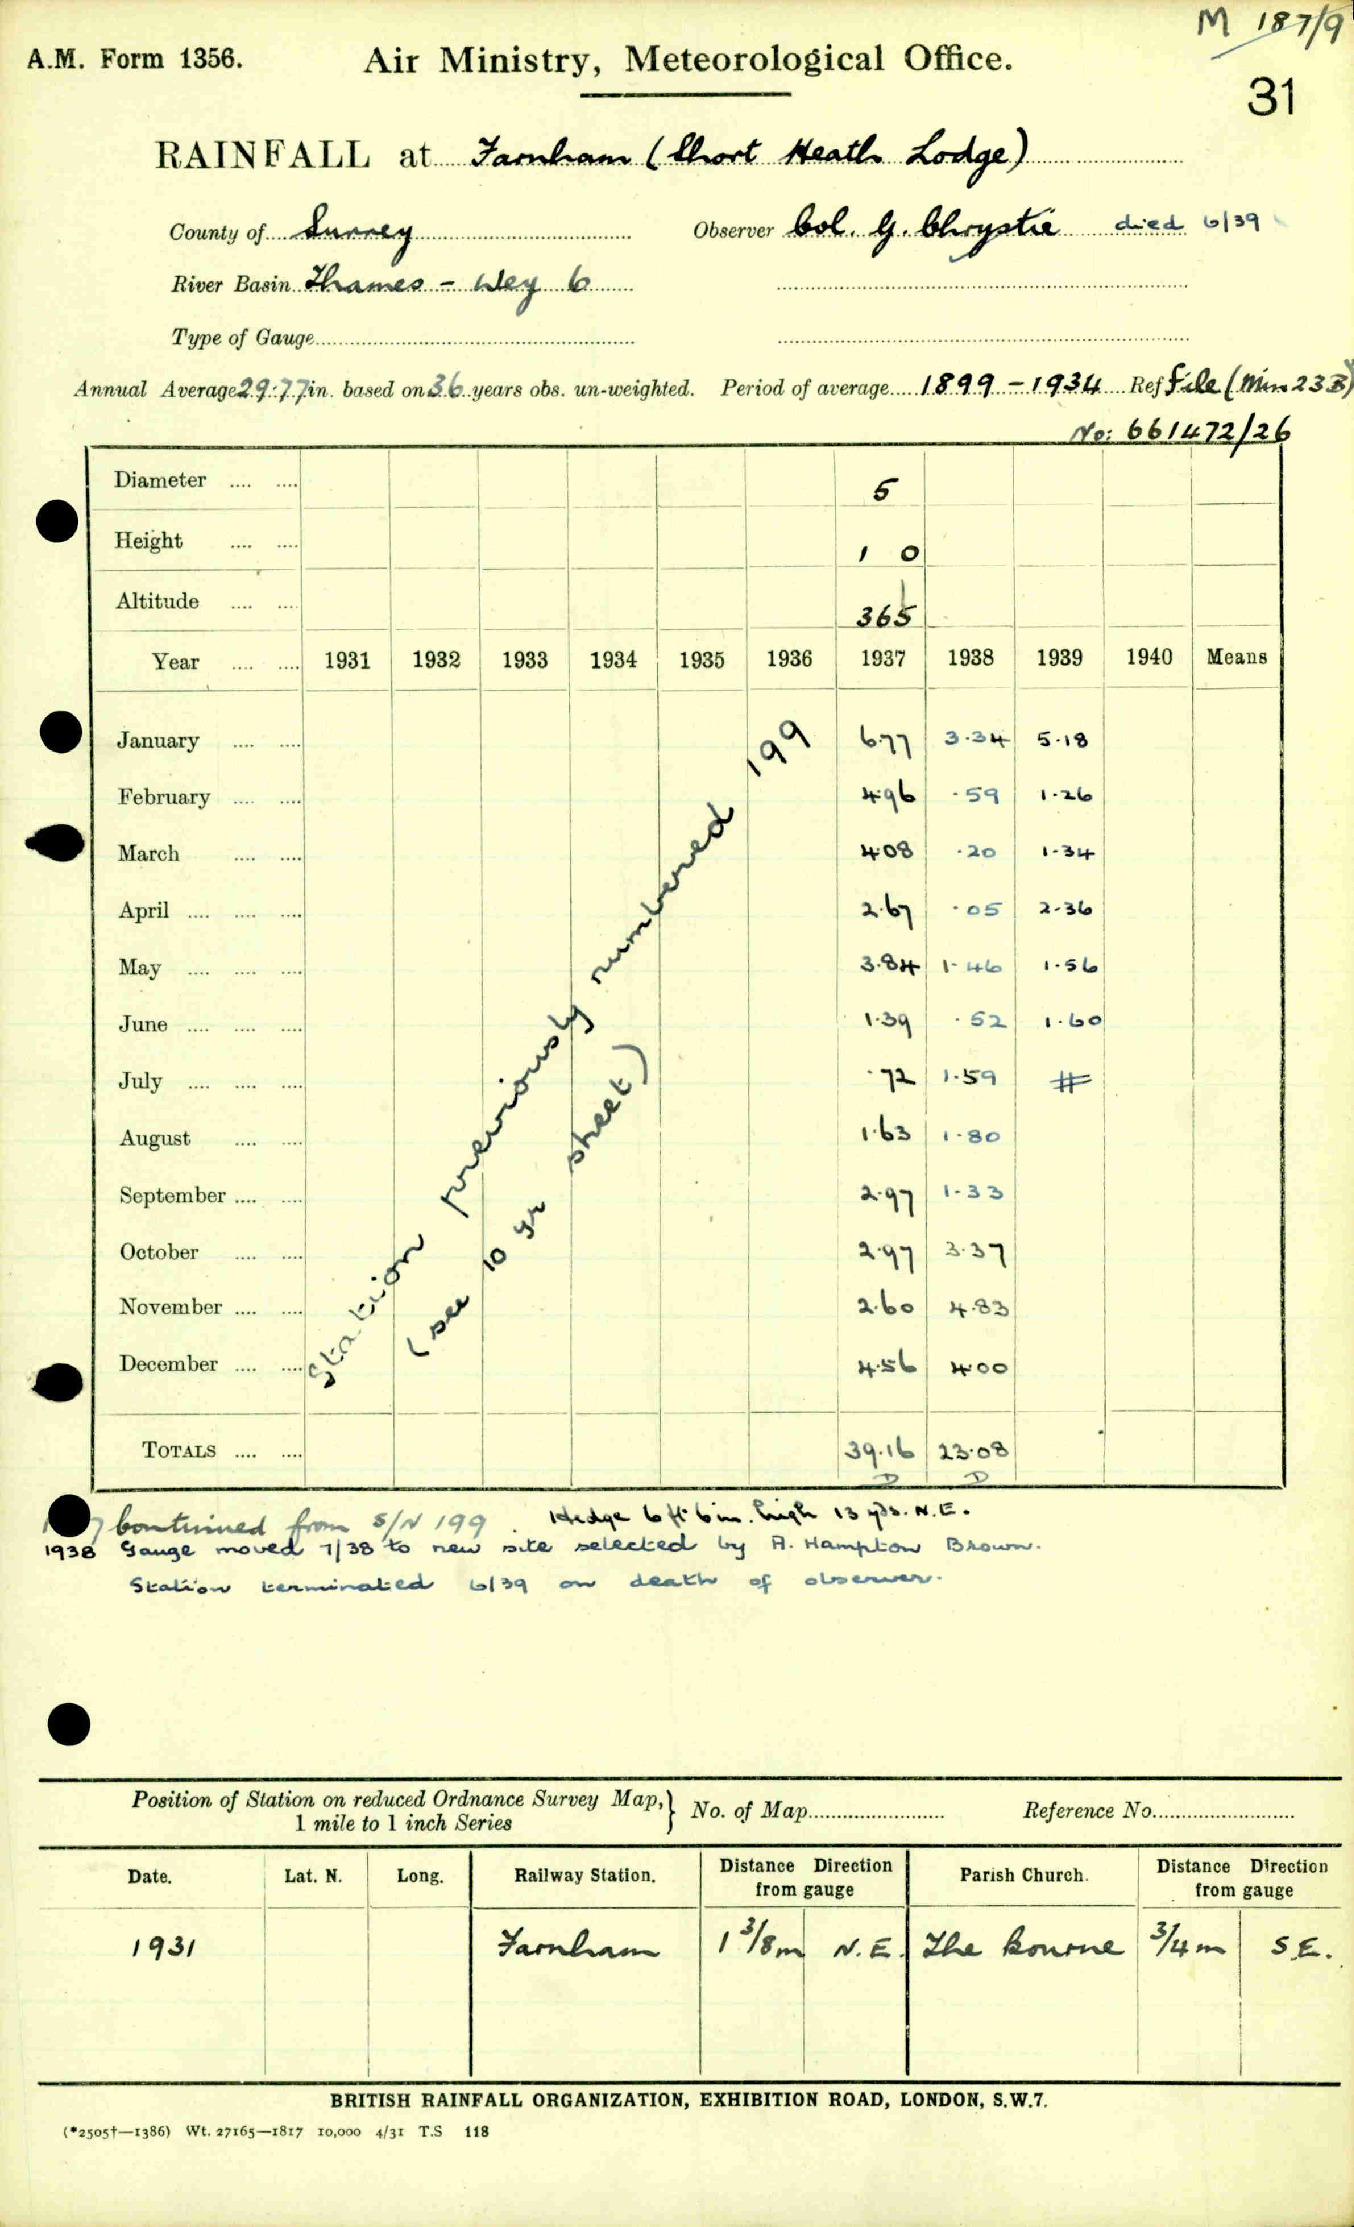 M 187/9
A.M. Form 1356. Air Ministry, Meteorological Office.
31
RAINFALL at Farnham (Short Heath Lodge)
County of Surrey Observer Col. G. Chrystie died 6/39
River Basin Thames - Wey 6
Type of Gauge
Annual Average 29.77 in. based on 36 years obs. un-weighted. Period of average 1899 - 1934 Ref File (Min 23B)
No: 661472/26
Diameter .... .... 5
Height .... .... 1 0
Altitude .... .... 365
Year .... .... 1931 1932 1933 1934 1935 1936 1937 1938 1939 1940 Means
January .... .... 6.77 3.34 5.18
February .... .... 4.96 .59 1.26
March .... .... 4.08 .20 1.34
April .... .... .... 2.67 .05 2.36
May .... .... .... 3.84 1.46 1.56
June .... .... .... 1.39 .52 1.60
July .... .... .... .72 1.59 #
August .... .... 1.63 1.80
September .... .... 2.97 1.33
October .... .... 2.97 3.37
November .... .... 2.60 4.83
December .... .... 4.56 4.00
TOTALS .... .... 39.16 23.08
D D
Station previously numbered 199
(see 10 yr sheet)
7 Continued from S/N 199. Hedge 6 ft 6 in. high 13 yds. N.E.
1938 Gauge moved 7/38 to new site selected by A. Hampton Brown.
Station terminated 6/39 on death of observer.
Position of Station on reduced Ordnance Survey Map,} No. of Map Reference No.
1 mile to 1 inch Series
Date. Lat. N. Long. Railway Station. Distance Direction from gauge Parish Church. Distance Direction from gauge
1931 Farnham 1 3/8 m N.E. The Bourne 3/4 m S.E.
BRITISH RAINFALL ORGANIZATION, EXHIBITION ROAD, LONDON, S.W.7.
(*2505†—1386) Wt. 27165—1817 10,000 4/31 T.S 118